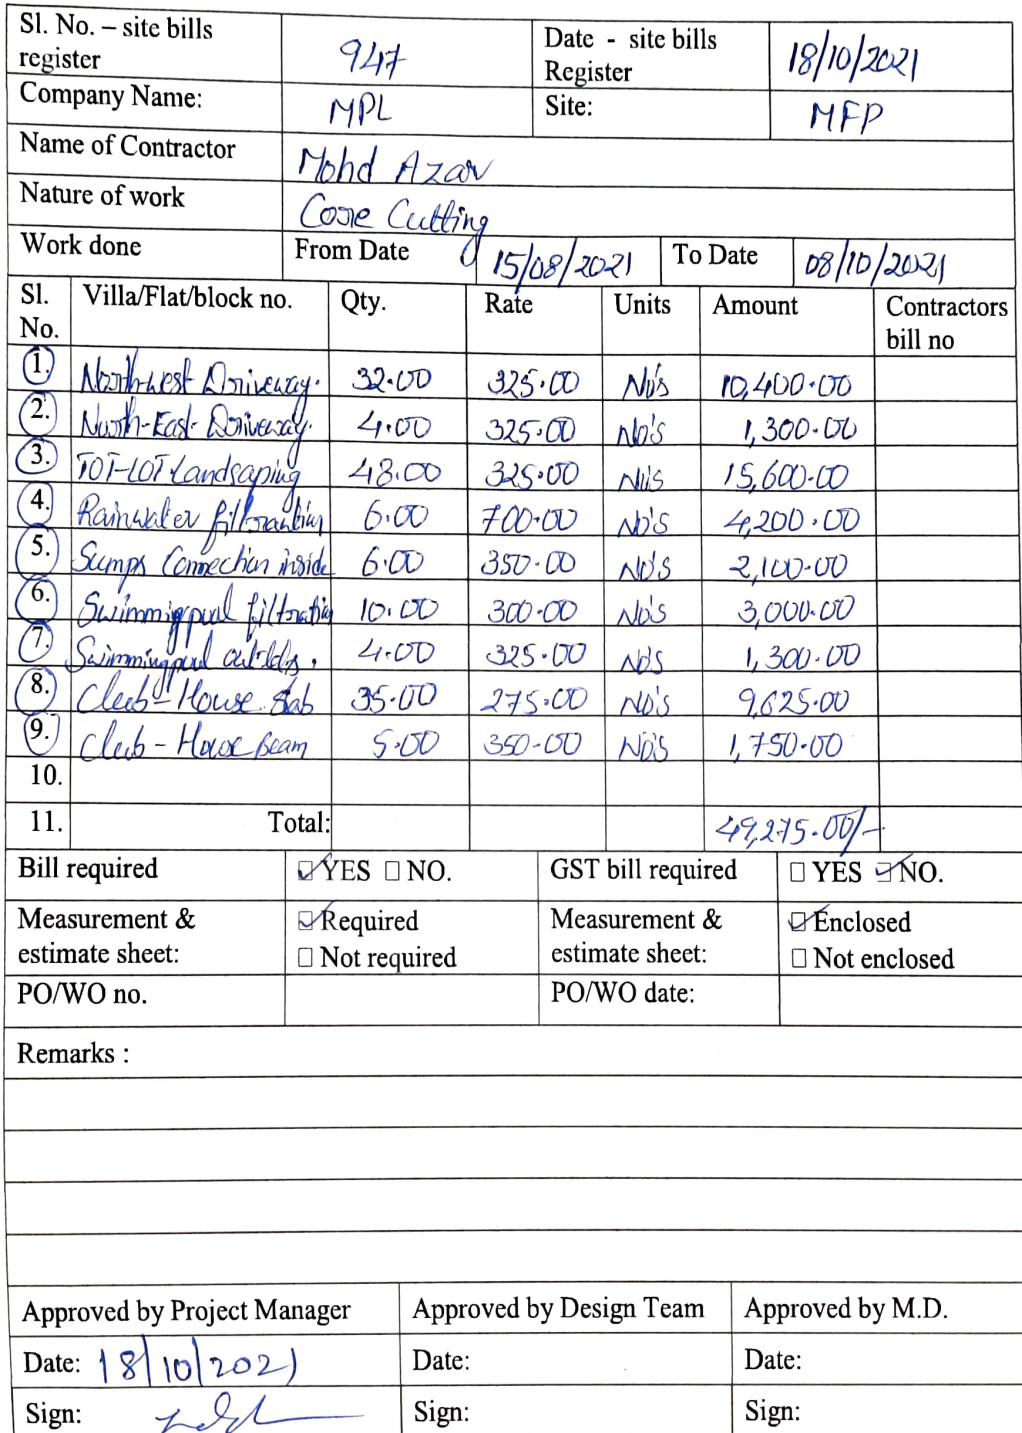 Sl. No. – site bills register 947 Date - site bills Register 18/10/2021
Company Name: MPL Site: MFP
Name of Contractor Mohd Azar
Nature of work Core Cutting
Work done From Date 15/08/2021 To Date 08/10/2021
Sl. No. Villa/Flat/block no. Qty. Rate Units Amount Contractors bill no
1. North-west Driveway. 32.00 325.00 No's 10,400.00
2. North-East Driveway. 4.00 325.00 No's 1,300.00
3. TOT-LOT Landscaping 48.00 325.00 No's 15,600.00
4. Rainwater filtration 6.00 700.00 No's 4,200.00
5. Sumps Connection inside 6.00 350.00 No's 2,100.00
6. Swimmingpool filtration 10.00 300.00 No's 3,000.00
7. Swimmingpool 4.00 325.00 No's 1,300.00
8. Club-House slab 35.00 275.00 No's 9,625.00
9. Club-House Beam 5.00 350.00 No's 1,750.00
10.
11. Total: 49,275.00/-
Bill required ☑ YES □ NO. GST bill required □ YES ☑ NO.
Measurement & estimate sheet: ☑ Required Measurement & estimate sheet: ☑ Enclosed
□ Not required □ Not enclosed
PO/WO no. PO/WO date:
Remarks :
Approved by Project Manager Approved by Design Team Approved by M.D.
Date: 18/10/2021 Date: Date:
Sign: Sign: Sign: